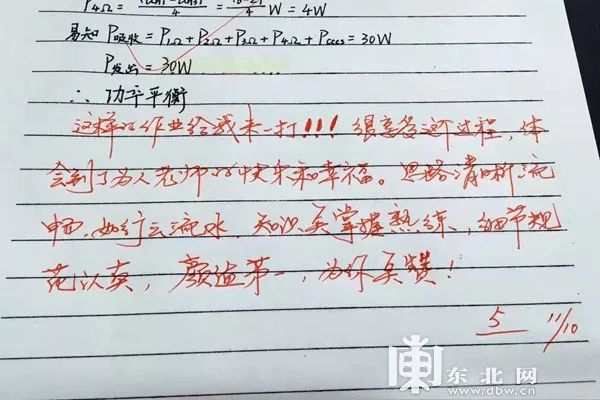 P4Ω = = W = 4W
易知 P吸收 = P1Ω + P2Ω + P3Ω + P4Ω + Pcccs = 30W
P发出 = 30W
∴ 功率平衡
这样的作业给我来一打!!! 很享受这个过程，体
会到了为人老师的快乐和幸福。思路清晰流
畅，如行云流水，知识点掌握熟练，细节规
范认真，颜值第一，为你点赞！
5 11/10
東北网
www.dbw.cn